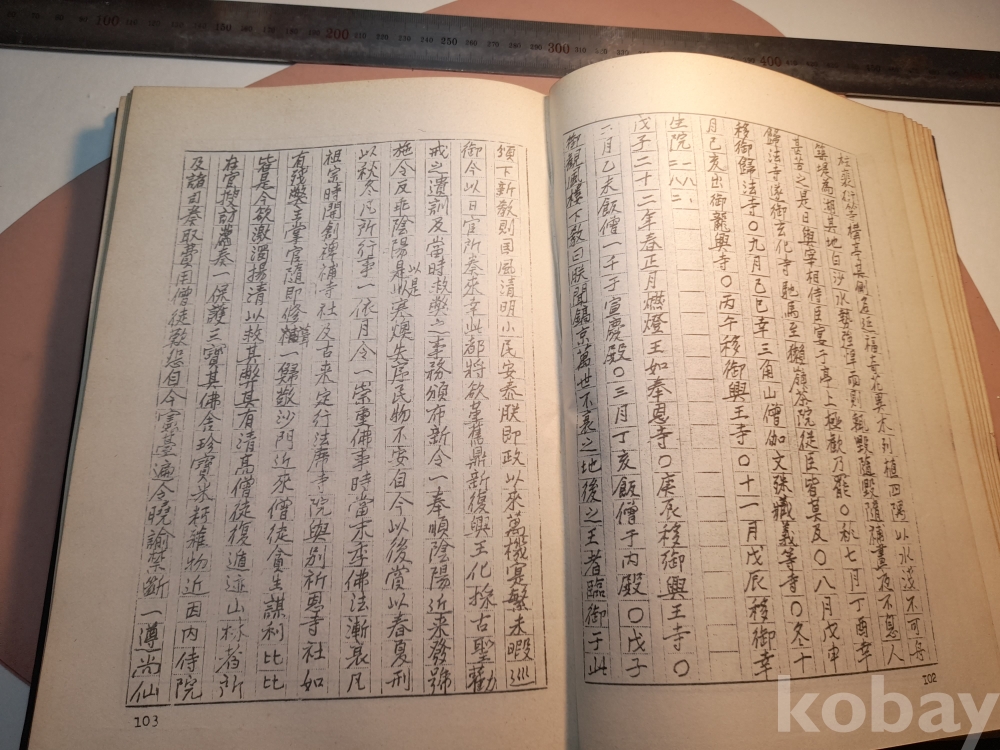 100 150 200 250 300 400
築堤爲湖其地白沙水勢强悍雨則輒毀隨毀隨補晝夜不息人
甚苦之是日與宰相侍臣宴于亭上極歡乃罷〇秋七月丁酉幸
歸法寺遂御玄化寺馳馬至獺嶺茶院從臣皆莫及〇八月戊申
移御歸法寺〇九月己巳幸三角山僧伽文殊藏義等寺〇冬十
月己亥出御龍興寺〇丙午移御興王寺〇十一月戊辰移御幸
生院
戊子二十二年春正月燃燈王如奉恩寺〇庚辰移御興王寺〇
二月乙未飯僧一千于宣慶殿〇三月丁亥飯僧于內殿〇戊子
御觀風樓下敎曰朕聞鎬京萬世不衰之地後之王者臨御于此
102
頒下新敎則國風淸明小民安泰朕卽政以來萬機寔繁未暇
御今以日官所奏來幸此都將欲革舊鼎新復興王化採古聖勸
戒之遺訓及當時救弊之事務頒布新令一奉順陰陽近來發號
施令反乖陰陽是以寒燠失序民物不安自今以後賞以春夏刑
以秋冬凡所行事一依月令一崇重佛事時當末季佛法漸衰凡
祖宗時開創裨補寺社及古來定行法席寺院與別祈恩寺社如
有殘弊主掌官隨卽修葺一歸敬沙門近來僧徒貪生謀利比比
皆是今欲激濁揚淸以救其弊其有淸高僧徒復遁迹山林者所
在官搜訪薦奏一保護三寶其佛舍珍寶米穀雜物近因內侍院
及諸司奏取費用僧徒歎怨自今憲臺遍令曉諭禁斷一遵尙仙
103
kobay